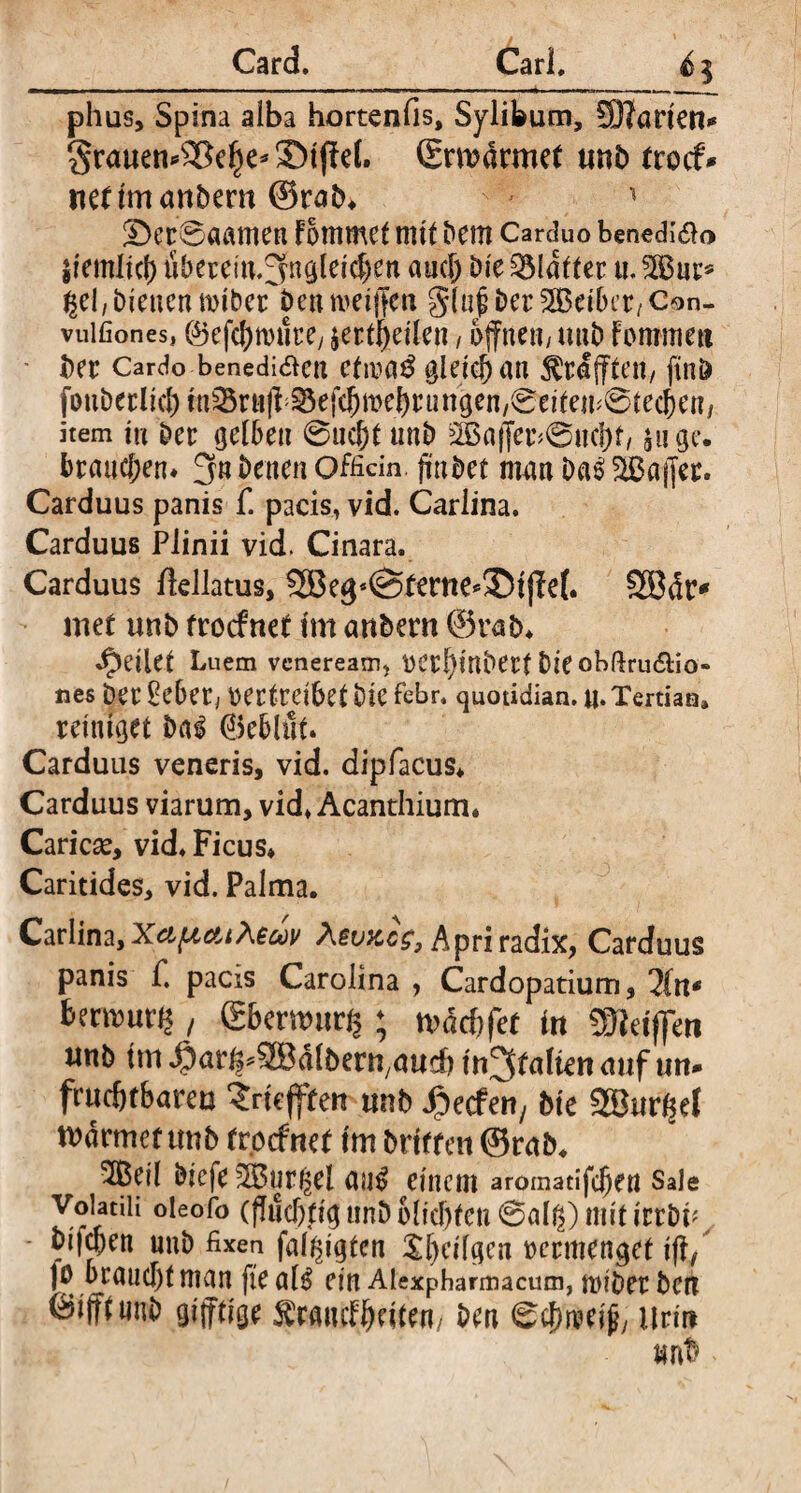 Card. Carl. 63
phus, Spina alba hortenſis, Sylibum, Marien-
Frauen-Vehe-Diſtel. Erwärmet und trock-
net im andern Grad.
Der Saamen kommet mit dem Carduo benedicto
ziemlich überein. Jngleichen auch die Blätter u. Wur-
tzel, dienen wider den weiſſen Fluß der Weiber, Con-
vulſiones, Geſchwüre, zertheilen, öffnen, und kommen
der Cardo benedicten etwas gleich an Kräfften, ſind
ſonderlich in Bruſt-Beſchwehrungen, Seiten-Stechen,
item in der gelben Sucht und Waſſer-Sucht, zu ge-
brauchen. Jn denen Officin. findet man das Waſſer.
Carduus panis ſ. pacis, vid. Carlina.
Carduus Plinii vid. Cinara.
Carduus ſtellatus, Weg-Sterne-Diſtel. Wär-
met und trocknet im andern Grad.
Heilet Luem veneream, verhindert die obſtructio-
nes der Leber, vertreibet die febr. quotidian. u. Tertian.
reiniget das Geblüt.
Carduus veneris, vid. dipſacus.
Carduus viarum, vid. Acanthium.
Caricæ, vid. Ficus.
Caritides, vid. Palma.
Carlina, Χαμαιλεων λευκὸς, Apri radix, Carduus
panis ſ. pacis Carolina, Cardopatium, An-
berwurtz, Eberwurtz; wächſet in Meiſſen
und im Hartz-Wäldern, auch in Jtalien auf un-
fruchtbaren Triefften und Hecken, die Wurtzel
wärmet und trocknet im dritten Grad.
Weil dieſe Wurtzel aus einem aromatiſchen Sale
Volatili oleoſo (flüchtig und ölichten Saltz) mit irrdi-
diſchen und fixen ſaltzigten Theilgen vermenget iſt,
ſo braucht man ſie als ein Alexpharmacum, wider den
Gifft und gifftige Kranckheiten, den Schweiß, Urin
und